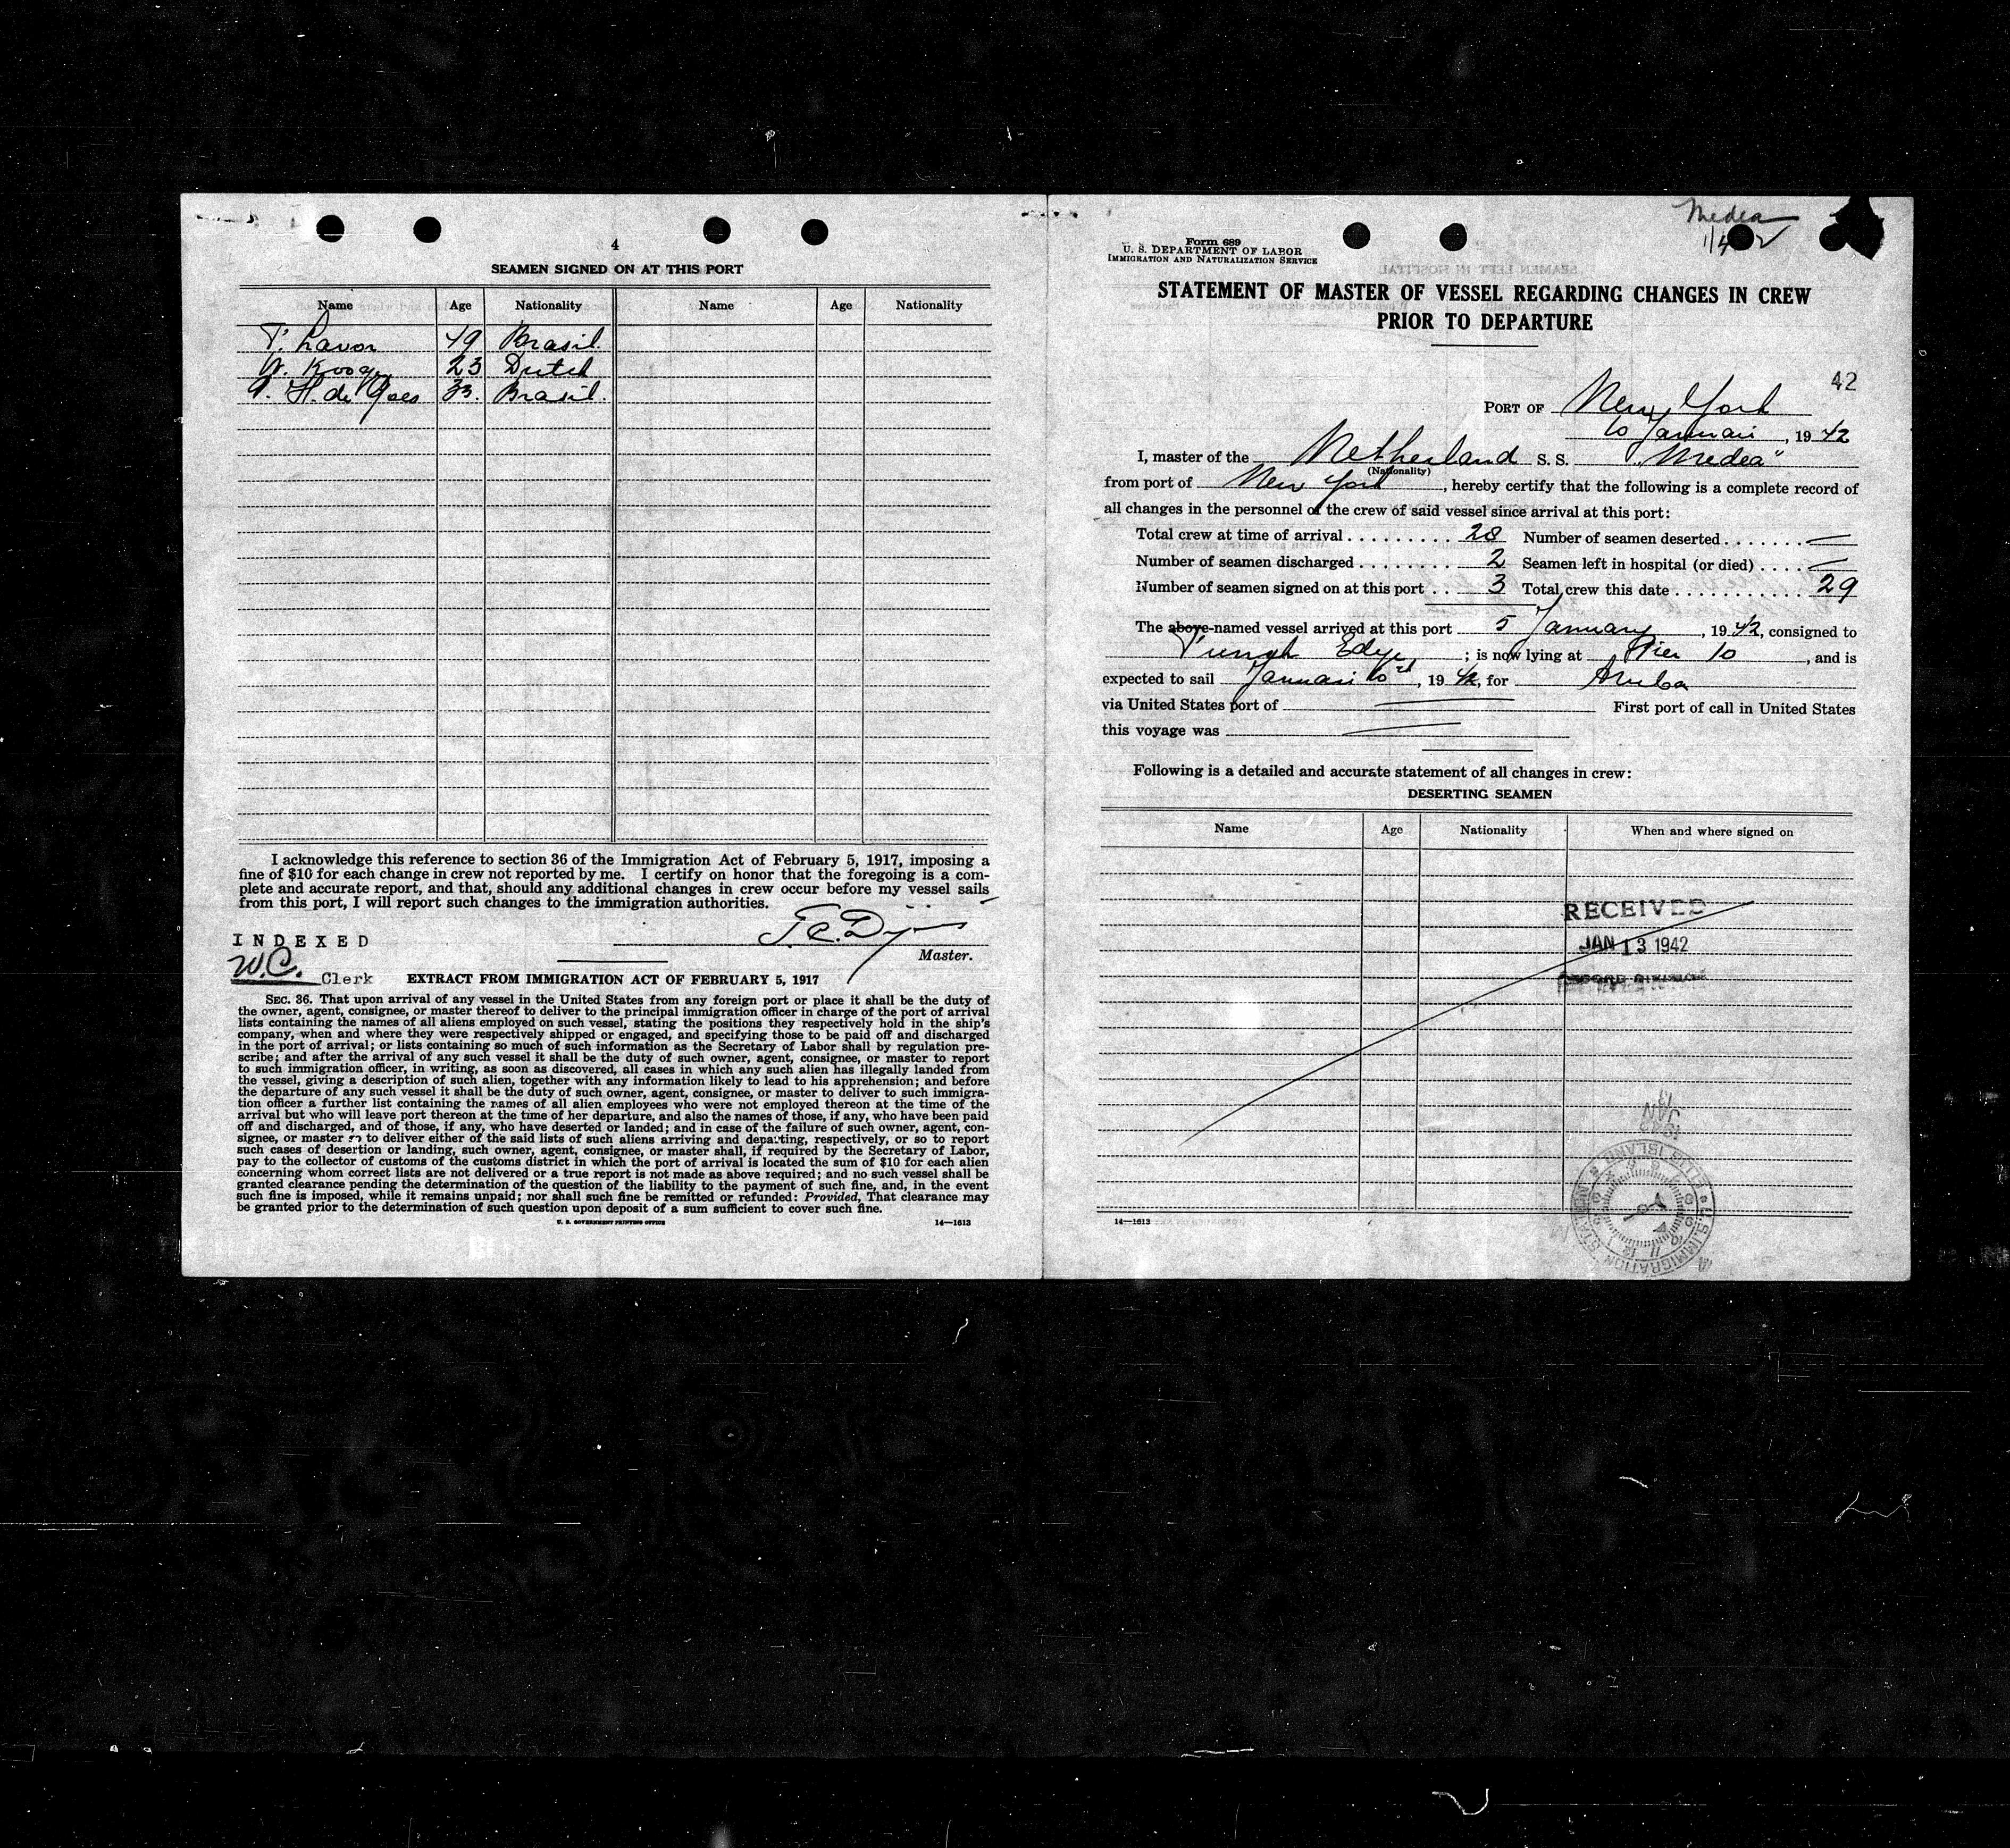 4
SEAMEN SIGNED ON AT THIS PORT
Name Age Nationality Name Age Nationality
T. Lavor 49 Brasil.
W. 23 Dutch
H. de Goes 33. Brasil.
I acknowledge this reference to section 36 of the Immigration Act of February 5, 1917, imposing a
fine of $10 for each change in crew not reported by me. I certify on honor that the foregoing is a com-
plete and accurate report, and that, should any additional changes in crew occur before my vessel sails
from this port, I will report such changes to the immigration authorities.
INDEXED
Master.
W.C. Clerk
EXTRACT FROM IMMIGRATION ACT OF FEBRUARY 5, 1917
SEC. 36. That upon arrival of any vessel in the United States from any foreign port or place it shall be the duty of
the owner, agent, consignee, or master thereof to deliver to the principal immigration officer in charge of the port of arrival
lists containing the names of all aliens employed on such vessel, stating the positions they respectively hold in the ship's
company, when and where they were respectively shipped or engaged, and specifying those to be paid off and discharged
in the port of arrival; or lists containing so much of such information as the Secretary of Labor shall by regulation pre-
scribe; and after the arrival of any such vessel it shall be the duty of such owner, agent, consignee, or master to report
to such immigration officer, in writing, as soon as discovered, all cases in which any such alien has illegally landed from
the vessel, giving a description of such alien, together with any information likely to lead to his apprehension; and before
the departure of any such vessel it shall be the duty of such owner, agent, consignee, or master to deliver to such immigra-
tion officer a further list containing the names of all alien employees who were not employed thereon at the time of the
arrival but who will leave port thereon at the time of her departure, and also the names of those, if any, who have been paid
off and discharged, and of those, if any, who have deserted or landed; and in case of the failure of such owner, agent, con-
signee, or master so to deliver either of the said lists of such aliens arriving and departing, respectively, or so to report
such cases of desertion or landing, such owner, agent, consignee, or master shall, if required by the Secretary of Labor,
pay to the collector of customs of the customs district in which the port of arrival is located the sum of $10 for each alien
concerning whom correct lists are not delivered or a true report is not made as above required; and no such vessel shall be
granted clearance pending the determination of the question of the liability to the payment of such fine, and, in the event
such fine is imposed, while it remains unpaid; nor shall such fine be remitted or refunded: Provided, That clearance may
be granted prior to the determination of such question upon deposit of a sum sufficient to cover such fine.
U. S. GOVERNMENT PRINTING OFFICE 14—1613
Medea
Form 689
U. S. DEPARTMENT OF LABOR
IMMIGRATION AND NATURALIZATION SERVICE
STATEMENT OF MASTER OF VESSEL REGARDING CHANGES IN CREW
PRIOR TO DEPARTURE
42
PORT OF New York
10 Januari, 1942
I, master of the Netherland S. S. "Medea"
(Nationality)
from port of New York, hereby certify that the following is a complete record of
all changes in the personnel of the crew of said vessel since arrival at this port:
Total crew at time of arrival . . . . . . . . . 28 Number of seamen deserted . . . . . . . —
Number of seamen discharged . . . . . . . . 2 Seamen left in hospital (or died) . . . . —
Number of seamen signed on at this port . . 3 Total crew this date . . . . . . . . . . . 29
The above-named vessel arrived at this port 5 January, 1942, consigned to
Funch Edye; is now lying at Pier 10, and is
expected to sail Januari 10, 1942, for Aruba
via United States port of — First port of call in United States
this voyage was —
Following is a detailed and accurate statement of all changes in crew:
DESERTING SEAMEN
Name Age Nationality When and where signed on
RECEIVED
JAN 13 1942
U.S. IMMIGRATION STATION ELLIS ISLAND
14—1613